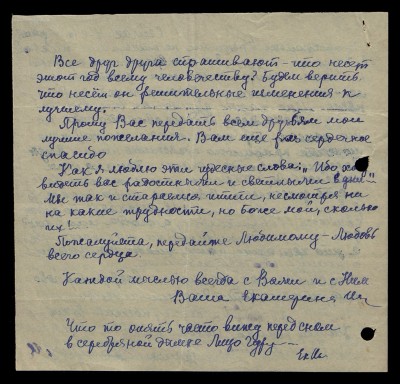 Все друг друга спрашивают – что несёт
этот год всему человечеству? Будем верить
что несёт он решительные изменения к
лучшему.
Прошу Вас передать всем друзьям мои
лучшие пожелания. Вам ещё раз сердечное
спасибо
Как я люблю эти чудесные слова: „Ибо хочу
видеть вас радостными и светлыми в дни"
Мы так и стараемся итти, несмотря ни
на какие трудности, но Боже мой, сколько
их!
Пожалуйста, передайте Любимому – Любовь
всего сердца
Каждой мыслью всегда с Вами и с Ним
Ваша Екатерина
Что то опять часто вижу перед сном
в серебряной дымке Лицо Гуру –